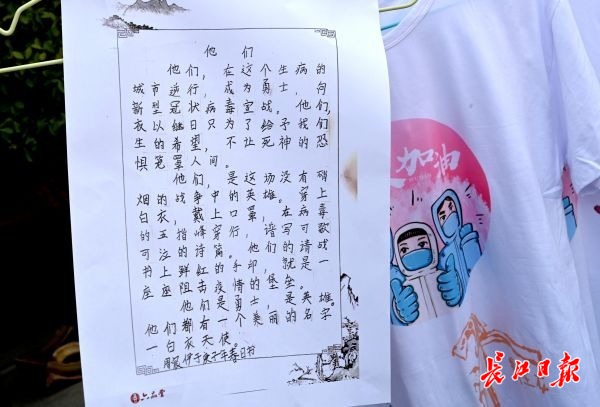 他们
他们，在这个生病的
城市逆行，成为勇士，向
新型冠状病毒宣战，他们，
衣以继日只为了给予我们
生的希望，不让死神的恐
惧笼罩人间。
他们，是这场没有硝
烟的战争中的英雄。穿上
白衣，戴上口罩，在病毒
的五指峰穿行，谱写可歌
可泣的诗篇。他们的请战
书上鲜红的手印，就是一
座座阻击疫情的堡垒。
他们是勇士，是英雄。
他们都有一个美丽的名字
—白衣天使。
伊于庚子年春日书
六品堂
加油
长江日报